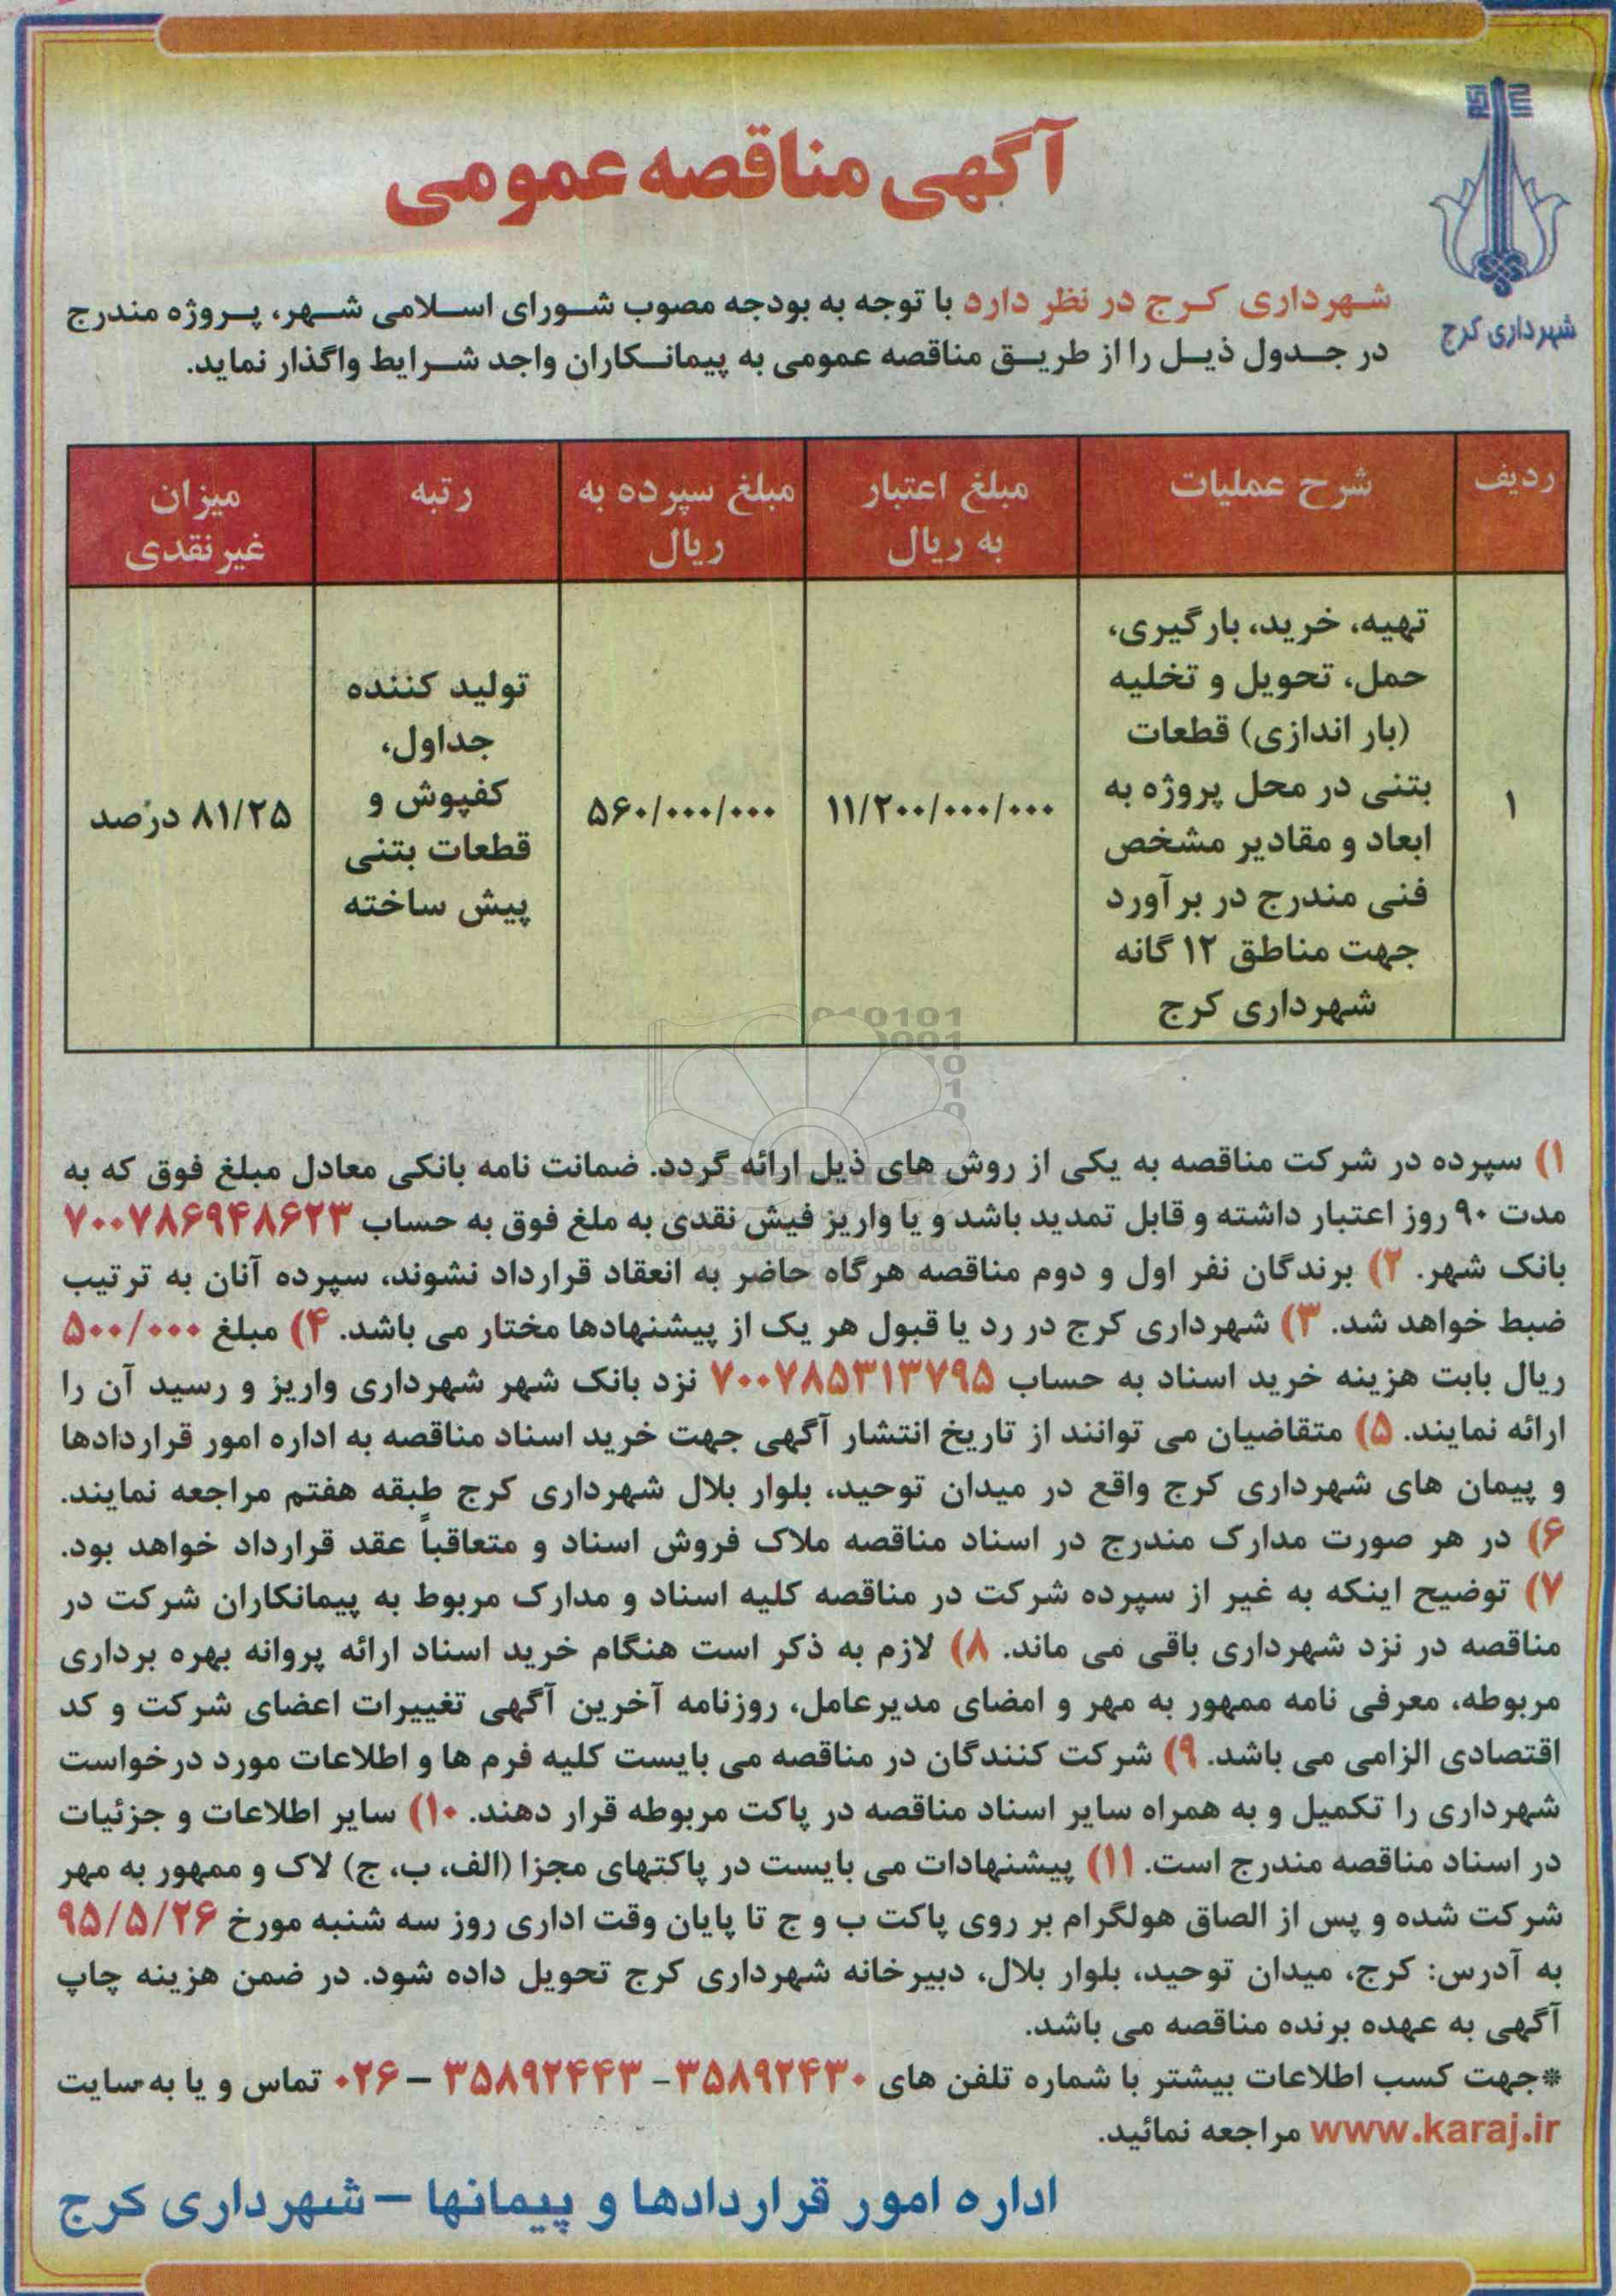 آگهی مناقصه عمومی
شهرداری کرج
شهرداری کرج در نظر دارد با توجه به بودجه مصوب شورای اسلامی شهر، پروژه مندرج
در جدول ذیل را از طریق مناقصه عمومی به پیمانکاران واجد شرایط واگذار نماید.
ردیف
شرح عملیات
مبلغ اعتبار
به ریال
مبلغ سپرده به
ریال
رتبه
میزان
غیرنقدی
۱
تهیه، خرید، بارگیری،
حمل، تحویل و تخلیه
(بار اندازی) قطعات
بتنی در محل پروژه به
ابعاد و مقادیر مشخص
فنی مندرج در برآورد
جهت مناطق ۱۲ گانه
شهرداری کرج
۱۱/۲۰۰/۰۰۰/۰۰۰
۵۶۰/۰۰۰/۰۰۰
تولید کننده
جداول،
کفپوش و
قطعات بتنی
پیش ساخته
۸۱/۲۵ درصد
۱) سپرده در شرکت مناقصه به یکی از روش های ذیل ارائه گردد. ضمانت نامه بانکی معادل مبلغ فوق که به
مدت ۹۰ روز اعتبار داشته و قابل تمدید باشد و یا واریز فیش نقدی به ملغ فوق به حساب ۷۰۰۷۸۶۹۴۸۶۲۳
بانک شهر. ۲) برندگان نفر اول و دوم مناقصه هرگاه حاضر به انعقاد قرارداد نشوند، سپرده آنان به ترتیب
ضبط خواهد شد. ۳) شهرداری کرج در رد یا قبول هر یک از پیشنهادها مختار می باشد. ۴) مبلغ ۵۰۰/۰۰۰
ریال بابت هزینه خرید اسناد به حساب ۷۰۰۷۸۵۳۱۳۷۹۵ نزد بانک شهر شهرداری واریز و رسید آن را
ارائه نمایند. ۵) متقاضیان می توانند از تاریخ انتشار آگهی جهت خرید اسناد مناقصه به اداره امور قراردادها
و پیمان های شهرداری کرج واقع در میدان توحید، بلوار بلال شهرداری کرج طبقه هفتم مراجعه نمایند.
۶) در هر صورت مدارک مندرج در اسناد مناقصه ملاک فروش اسناد و متعاقباً عقد قرارداد خواهد بود.
۷) توضیح اینکه به غیر از سپرده شرکت در مناقصه کلیه اسناد و مدارک مربوط به پیمانکاران شرکت در
مناقصه در نزد شهرداری باقی می ماند. ۸) لازم به ذکر است هنگام خرید اسناد ارائه پروانه بهره برداری
مربوطه، معرفی نامه ممهور به مهر و امضای مدیرعامل، روزنامه آخرین آگهی تغییرات اعضای شرکت و کد
اقتصادی الزامی می باشد. ۹) شرکت کنندگان در مناقصه می بایست کلیه فرم ها و اطلاعات مورد درخواست
شهرداری را تکمیل و به همراه سایر اسناد مناقصه در پاکت مربوطه قرار دهند. ۱۰) سایر اطلاعات و جزئیات
در اسناد مناقصه مندرج است. ۱۱) پیشنهادات می بایست در پاکتهای مجزا (الف، ب، ج) لاک و ممهور به مهر
شرکت شده و پس از الصاق هولگرام بر روی پاکت ب و ج تا پایان وقت اداری روز سه شنبه مورخ ۹۵/۵/۲۶
به آدرس: کرج، میدان توحید، بلوار بلال، دبیرخانه شهرداری کرج تحویل داده شود. در ضمن هزینه چاپ
آگهی به عهده برنده مناقصه می باشد.
*جهت کسب اطلاعات بیشتر با شماره تلفن های ۳۵۸۹۲۴۳۰- ۳۵۸۹۲۴۴۳ – ۰۲۶ تماس و یا به سایت
www.karaj.ir مراجعه نمائید.
اداره امور قراردادها و پیمانها – شهرداری کرج